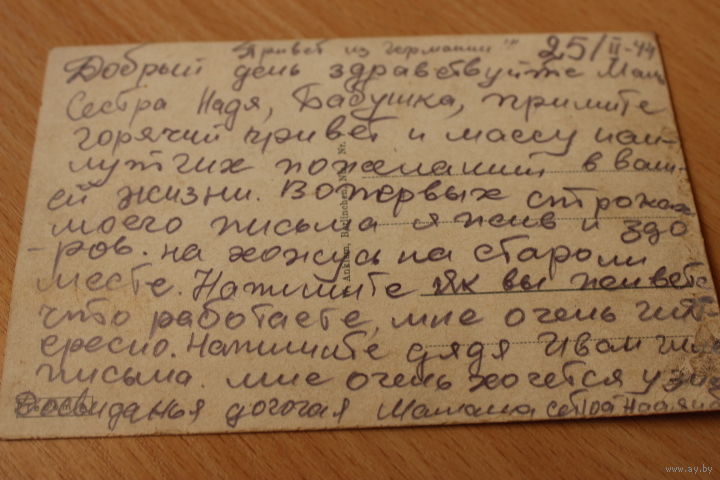 Привет из германии!!! 25/II-44
Добрый день здравствуйте Мать
Сестра Надя, Бабушка, примите
горячий привет и массу наи-
лутчих пожеланий в ваш-
ей жизни. Вопервых строках
моего письма я жив и здо
-ров. на хожусь на старом
месте. Напишите як вы живете
что работаете, мне очень инт-
ересно. Напишите дядя Иван
письма. мне очень хочется узна
Досвиданья догогая Мамаша сестра Надя
Anklam, Berlinchen
www.ay.by